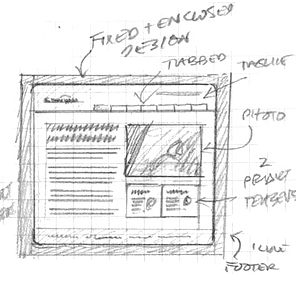 FIXED + ENCLOSED
DESIGN
TABBED
TAGLINE
PHOTO
2
PRODUCT
TEASERS
FOOTER